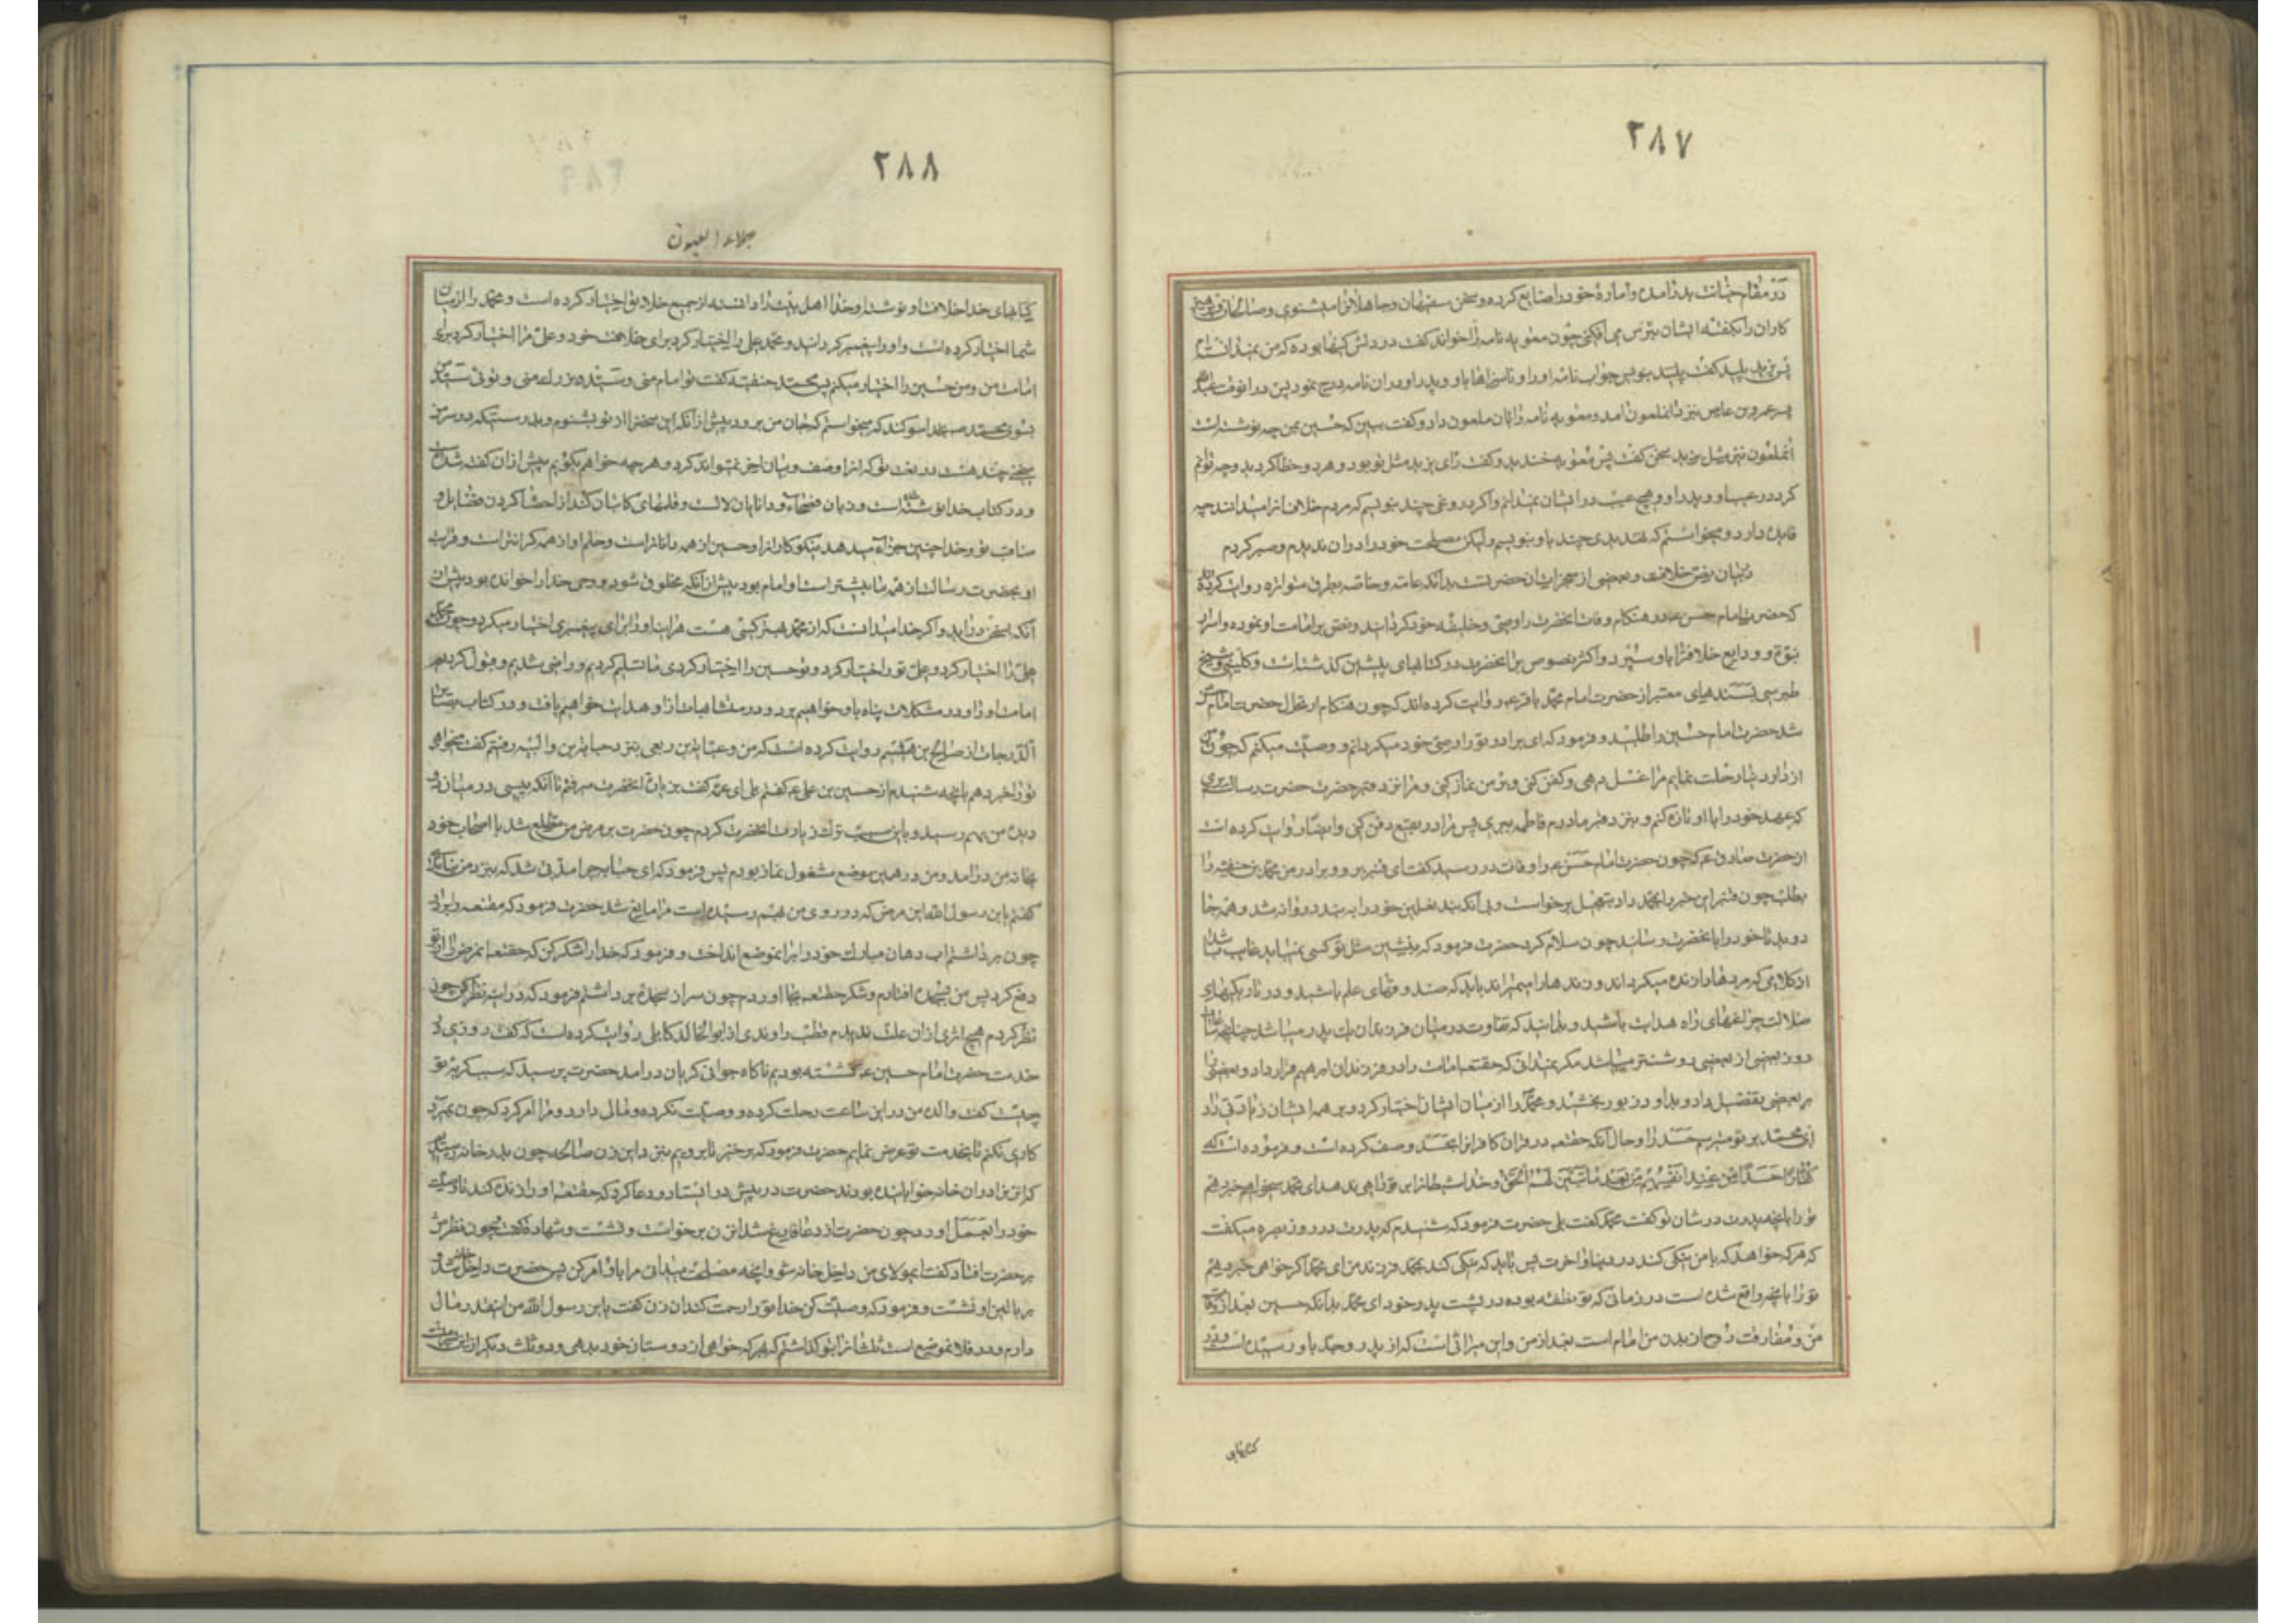 ۲۸۷
در مقام خیانت بدر آمده و امارهٔ خود را ضایع کرده و سخن سفیهان و جاهلانرا میشنوی و صالحان و پرهیز
کاران را بگفته ایشان بترس می‌افکنی چون معویه نامه را خواند گفت در دلش کینها بوده که من نمیدانستم
پس یزید پلید گفت پلید بنویس جواب نامه او را و ناسزاها باو و پدر او در ان نامه درج نمود پس در انوقت عبدالله
پسر عمرو بن عاص بنزد انملعون امد و معویه نامه را بان ملعون داد و گفت ببین که حسین بمن چه نوشته است
انملعون نیز مثل یزید سخن گفت پس معویه خندید و گفت رای یزید مثل تو بود و هر دو خطا کردید و چه توانم
کرد در عیب او و پدر او و هیچ عیب در ایشان نمیدانم و اگر دروغی چند بنویسم که مردم خلاف انرا میدانند چه
فایده دارد و میخواستم که تهدیدی چند باو بنویسم ولیکن مصلحت خود را در ان ندیدم و صبر کردم
در بیان نص خلافت و بعضی از معجزات ان حضرتست بدانکه عامه و خاصه بطرق متواتره روایت کرده‌اند
که حضرت امام حسن ع در هنکام وفات انحضرت را وصی و خلیفه خود کردانید و نص بر امامت او نموده و اسرار
نبوة و ودایع خلافترا باو سپرد و اکثر نصوص بر انحضرت در کتابهای پیشین کذشت و کلینی و شیخ
طبرسی بسندهای معتبر از حضرت امام محمد باقر ع روایت کرده اند که چون هنکام ارتحال حضرت امام حسن
شد حضرت امام حسین را طلبید و فرمود که ای برادر تو را وصی خود میکردانم و وصیت میکنم که چون من
از دار دنیا رحلت نمایم مرا غسل دهی و کفن کنی و بر من نماز کنی و مرا نزد قبر حضرت رسالت بری
که عهد خود را با او تازه کنم و بنزد قبر مادرم فاطمه ببری پس مرا در بقیع دفن کنی و ایضا روایت کرده است
از حضرت صادق ع که چون حضرت امام حسن ع را وفات در رسید گفت ای قنبر برو و برادر من محمد بن حنفیه را
بطلب چون قنبر این خبر را بمحمد داد بتعجیل برخواست و بی آنکه بند نعلین خود را به بندد روانه شد و همه جا
دوید تا خود را بانحضرت رسانید چون سلام کرد حضرت فرمود که بنشین مثل تو کسی نمیباید غایب باشد
از کلامی که مردها را زنده میکرداند و زندها را میمیراند باید که صندوقهای علم باشید و در تاریکیهای
ضلالت چراغهای راه هدایت باشید و بدانید که تفاوت در میان فرزندان یک پدر میباشد چنانچه ساعات
روز بعضی از بعضی روشنتر میباشد مکر نمیدانی که حقتعالی امامت را در فرزندان ابرهیم قرار داد و بعضی را
بر بعضی تفضیل داد و بداود زبور بخشید و محمد را از میان ایشان اختیار کرد و بر همه ایشان زیادتی داد
ای محمد بر تو میترسم حسد را و حال آنکه حقتعالی در قران کافرانرا بحسد وصف کرده است و فرموده است که
کفارا حسدا من عند انفسهم من بعد ما تبین لهم الحق و خدا شیطانرا بر تو راهی ندهد ای محمد میخواهم خبر دهم
تو را بانچه پدرت در شان تو گفت محمد گفت بلی حضرت فرمود که شنیدم که پدرت در روز بصره میکفت
که هر که خواهد که با من نیکی کند در دنیا و اخرت پس باید که نیکی کند بمحمد فرزند من ای محمد اکر خواهی خبر دهم
تو را بانچه واقع شده است در زمانی که تو نطفه بوده در پشت پدر خود ای محمد بدانکه حسین بعد از وفات
من و مفارقت روح از بدن من امام است بعد از من و این میراثی است که از پدر و جد باو رسیده است و در
کتابهای
۲۸۸
جلاء العیون
کتابهای خدا خلافت او نوشته و خدا اهل بیت را دانسته از جمیع خلایق اختیار کرده است و محمد را از میان
شما اختیار کرده است و او را پیغمبر کردانید و محمد علی را اختیار کرد برای خلافت خود و علی مرا اختیار کرد برای
امامت من و من حسین را اختیار میکنم پس محمد حنفیه گفت تو امام منی و سید و بزرک منی و توئی سید من
بسوی محمد بخدا سوکند که میخواستم که جان من برود پیش از آنکه این سخن را از تو بشنوم و بدرستیکه در سر من
سخنی چند هست در نعت تو که انرا وصف و بیان اخر نمیتواند کرد و هر چه خواهم بکویم پیش از ان گفته شده است
و در کتاب خدا نوشته شده است و زبان فصحاء و دانایان لالست و قلمهای کاتبان کند از احصا کردن فضایل و
مناقب تو و خدا چنین جزا میدهد نیکوکارانرا و حسین از همه داناتر است و حلم او از همه کرانتر است و قرابت
او بحضرت رسالت از همه ما بیشتر است و امام بود پیش از آنکه مخلوق شود و وحی خدا را خوانده بود پیش از
آنکه بسخن در آید و اکر خدا میدانست که از محمد بهتر کسی هست هراینه او را برای پیغمبری اختیار میکرد و چون محمد
علی را اختیار کرد و علی تو را اختیار کرد و تو حسین را اختیار کردی ما تسلیم کردیم و راضی شدیم و قبول کردیم
امامت او را و در مشکلات پناه باو خواهیم برد و در متشابهات از او هدایت خواهیم یافت و در کتاب بصایر
الدرجات از صالح بن میثم روایت کرده است که من و عبایة بن ربعی بنزد حبابه بن والبیه رفتیم گفت میخواهی
تو را خبر دهم بانچه شنیدم از حسین بن علی ع گفتم بلی ای عمه گفت من بزیارت انحضرت میرفتم تا آنکه پیسی در میان دو
دیده من بهم رسید و باین سبب ترک زیارت انحضرت کردم چون حضرت بر مرض من مطلع شد با اصحاب خود
بخانه من درآمد و من در همین موضع مشغول نماز بودم پس فرمود که ای حبابه چرا مدتی شد که بنزد من نیامدی
گفتم یابن رسول الله این مرض که در روی من بهم رسیده است مرا مانع شد حضرت فرمود که مقنعه را بردار
چون برداشتم اب دهان مبارک خود را برانموضع انداخت و فرمود که خدا را شکر کن که حقتعالی انمرض را از تو
دفع کرد پس من بسجده افتادم و شکر حقتعالی بجا آوردم چون سر از سجده برداشتم فرمود که در اینه نظر کن چون
نظر کردم هیچ اثری از ان علت ندیدم قطب راوندی از ابو الخالد کابلی روایت کرده است که گفت روزی در
خدمت حضرت امام حسین ع نشسته بودیم ناکاه جوانی کریان درامد حضرت پرسید که سبب کریهٔ تو
چیست گفت والدهٔ من در این ساعت رحلت کرده و وصیت نکرده و مالی دارد و مرا امر کرد که چون بمیرد
کاری نکنم تا بخدمت تو عرض نمایم حضرت فرمود که برخیز تا برویم بنزد این زن صالحه چون بدر خانه رسیدیم
که ان زن را در ان خانه خوابانیده بودند حضرت در پیش در ایستاد و دعا کرد که حقتعالی او را زنده کند تا وصیت
خود را بعمل اورد چون حضرت از دعا فارغ شد ان زن برخواست و نشست و شهادت گفت چون نظرش
بر حضرت افتاد گفت ایمولای من داخل خانه شو و انچه مصلحت میدانی مرا باو امر کن پس حضرت داخل خانه شد و
بر بالین او نشست و فرمود که وصیت کن خدا تو را رحمت کند ان زن گفت یابن رسول الله من اینقدر مال
دارم و در فلان موضع است ثلث انرا بتو گذاشتم که بهر که خواهی از دوستان خود بدهی و دو ثلث دیگر از